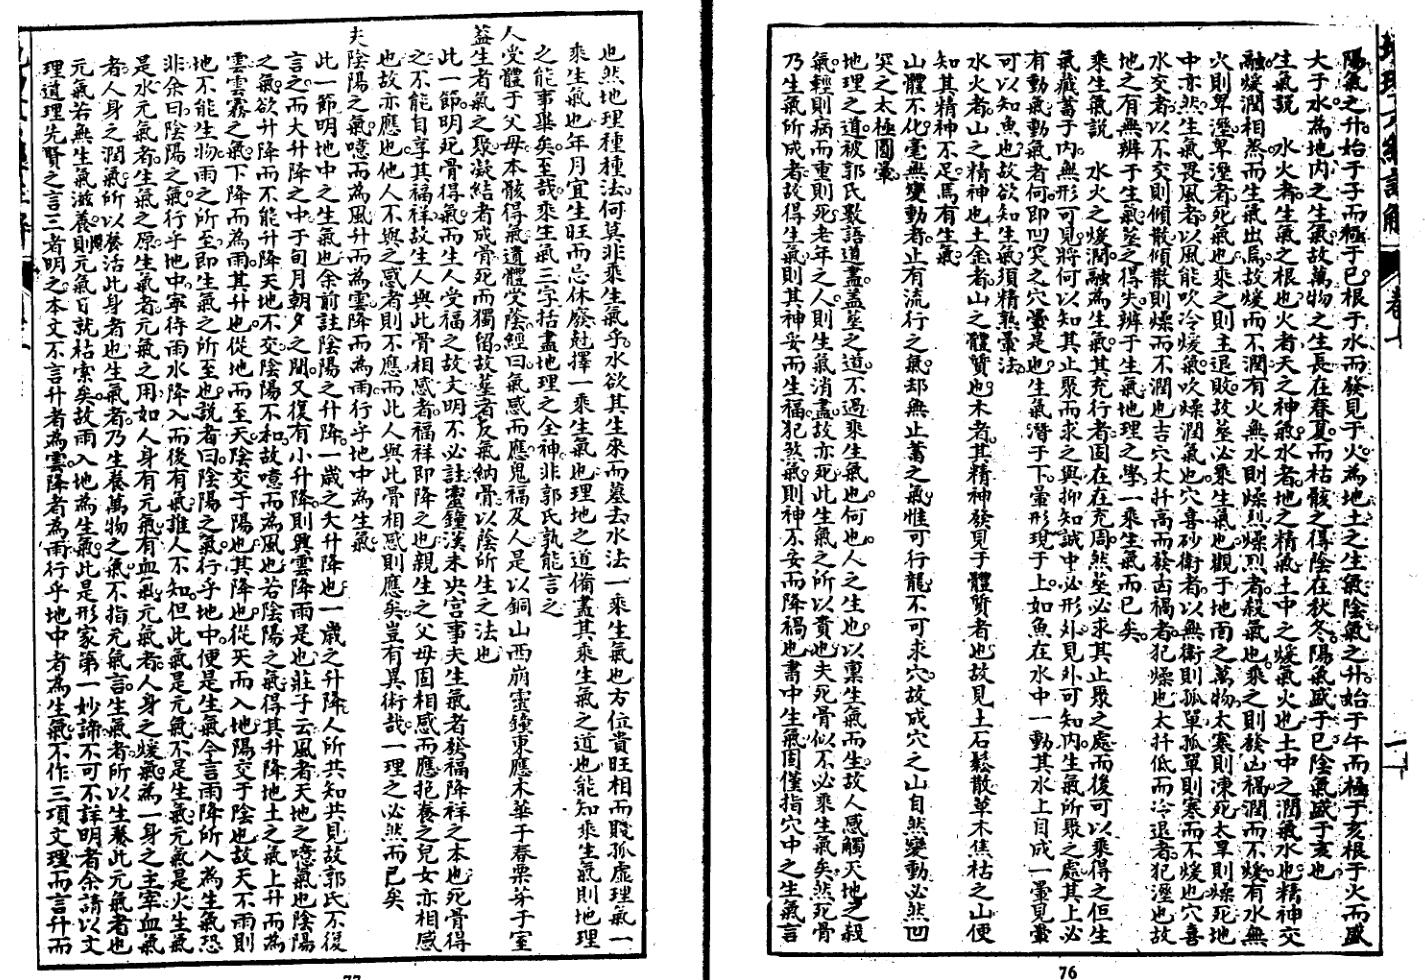 陽氣之升始于子而極于巳根于水而發見于火為地土之生氣陰氣之升始于午而極于亥根于火而盛
大于水為地內之生氣故萬物之生長在春夏而枯骸之得陰在秋冬陽氣盛于巳陰氣盛于亥也
生氣說 水火者生氣之根也火者天之神氣水者地之精氣土中之煖氣火也土中之潤氣水也精神交
融煖潤相蒸而生氣出焉故煖而不潤有火無水則燥烈燥烈者殺氣也乘之則發凶禍潤而不煖有水無
火則卑溼卑溼者死氣也乘之則主退敗故葬必乘生氣也觀于地面之萬物太寒則凍死太旱則燥死地
中亦然生氣畏風者以風能吹冷煖氣吹燥潤氣也穴喜砂衛者以無衛則孤單孤單則寒而不煖也穴喜
水交者以不交則傾散傾散則燥而不潤也吉穴太扞高而發凶禍者犯燥也太扞低而冷退者犯溼也故
地之有無辨于生氣葬之得失辨于生氣地理之學一乘生氣而已矣
乘生氣說 水火之煖潤融為生氣其充行者固在在充周然葬必求其止聚之處而後可以乘得之但生
氣藏蓄于內無形可見將何以知其止聚而求之與抑知誠中必形外見外可知內生氣所聚之處其上必
有動氣動氣者何即凹突之穴暈是也生氣潛于下暈形現于上如魚在水中一動其水上自成一暈見暈
可以知魚也故欲知生氣須精熟暈法
水火者山之精神也土金者山之體質也木者其精神發見于體質者也故見土石鬆散草木焦枯之山便
知其精神不足焉有生氣
山體不化毫無變動者止有流行之氣却無止蓄之氣惟可行龍不可求穴故成穴之山自然變動必然凹
突之太極圓暈
地理之道被郭氏數語道盡蓋葬之道不過乘生氣也何也人之生也以稟生氣而生故人感觸天地之殺
氣輕則病而重則死老年之人則生氣消盡故亦死此生氣之所以貴也夫死骨似不必乘生氣矣然死骨
乃生氣所成者故得生氣則其神安而生福犯煞氣則神不安而降禍也書中生氣固僅指穴中之生氣言
76
也然地理種種法何莫非乘生氣乎水欲其生來而墓去水法一乘生氣也方位貴旺相而賤孤虛理氣一
乘生氣也年月宜生旺而忌休廢尅擇一乘生氣也理地之道備盡其乘生氣之道也能知乘生氣則地理
之能事畢矣至哉乘生氣三字括盡地理之全神非郭氏孰能言之
人受體于父母本骸得氣遺體受蔭經曰氣感而應鬼福及人是以銅山西崩靈鐘東應木華于春栗芽于室
蓋生者氣之聚凝結者成骨死而獨留故葬者反氣納骨以蔭所生之法也
此一節明死骨得氣而生人受福之故文明不必註靈鐘漢未央宮事夫生氣者發福降祥之本也死骨得
之不能自享其福祥故生人與此骨相感者福祥即降之也親生之父母固相感而應抱養之兒女亦相感
也故亦應也他人不與之感者則不應而此人與此骨相感則應矣豈有異術哉一理之必然而已矣
夫陰陽之氣噫而為風升而為雲降而為雨行乎地中為生氣
此一節明地中之生氣也余前註陰陽之升降一歲之大升降也一歲之升降人所共知共見故郭氏不復
言之而大升降之中于旬月朝夕之間又復有小升降則興雲降雨是也莊子云風者天地之噫氣也陰陽
之氣欲升降而不能升降天地不交陰陽不和故噫而為風也若陰陽之氣得其升降地土之氣上升而為
雲雲霧之氣下降而為雨其升也從地而至天陰交于陽也其降也從天而入地陽交于陰也故天不雨則
地不能生物雨之所至即生氣之所至也說者曰陰陽之氣行乎地中便是生氣今言雨降所入為生氣恐
非余曰陰陽之氣行乎地中寧待雨水降入而後有氣誰人不知但此氣是元氣不是生氣元氣是火生氣
是水元氣者生氣之原生氣者元氣之用如人身有元氣有血氣元氣者人身之煖氣為一身之主宰血氣
者人身之潤氣所以養活此身者也生氣者乃生養萬物之氣不指元氣言生氣者所以生養此元氣者也
元氣若無生氣滋養則元氣日就枯索矣故雨入地為生氣此是形家第一妙諦不可不詳明者余請以文
理道理先賢之言三者明之本文不言升者為雲降者為雨行乎地中者為生氣不作三項文理而言升而
77